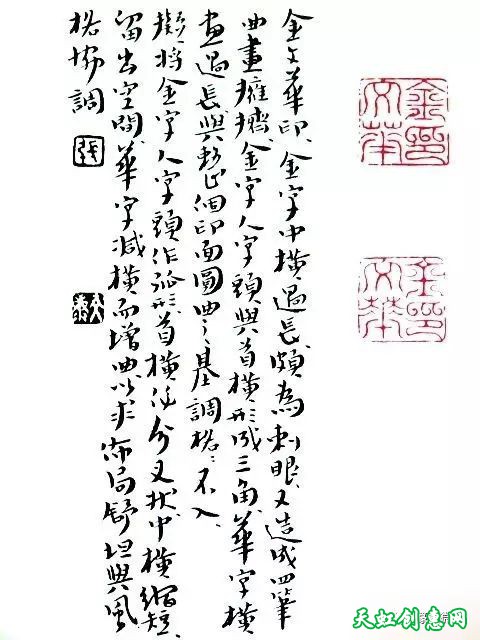 金文華印、金字中橫過長、頗為刺眼、又造成四筆
曲畫擁擠、金字人字頭與首橫形成三角、華字橫
畫過長與整個印面圓曲之基調格々不入、
擬將金字人字頭作弧形、首橫作分叉狀、中橫縮短、
留出空間、華字減橫而增曲、以求布局舒坦與風
格協調
張
金印文華
金印文華
天虹创意网